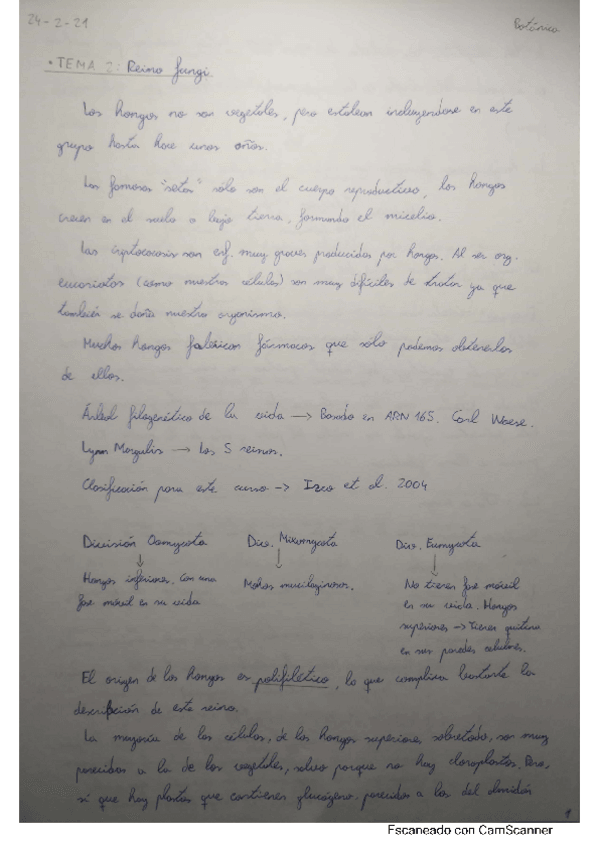 24-2-21
Botánica
• TEMA 2: Reino fungi.
Los hongos no son vegetales, pero estaban incluyendose en este
grupo hasta hace unos años.
Las famosas "setas" sólo son el cuerpo reproductivo, los hongos
crecen en el suelo o bajo tierra, formando el micelio.
Las criptococosis son enf. muy graves producidas por hongos. Al ser org.
eucariotas (como nuestras células) son muy difíciles de tratar ya que
también se daña nuestro organismo.
Muchos hongos fabrican fármacos que sólo podemos obtenerlos
de ellos.
Árbol filogenético de la vida → Basado en ARN 16S. Carl Woese.
Lynn Margulis → Los 5 reinos.
Clasificación para este curso → Izco et al. 2004
División Oomycota
Div. Mixomycota
Div. Eumycota
Hongos inferiores. Con una
fase móvil en su vida
Mohos mucilaginosos.
No tienen fase móvil
en su vida. Hongos
superiores → Tienen quitina
en sus paredes celulares.
El origen de los hongos es polifilético, lo que complica bastante la
descripción de este reino.
La mayoría de las células, de los hongos superiores, sobretodo, son muy
parecidas a la de los vegetales, salvo porque no hay cloroplastos. Pero,
sí que hay plastos que contienen glucógeno, parecidos a los del almidón
1
Escaneado con CamScanner